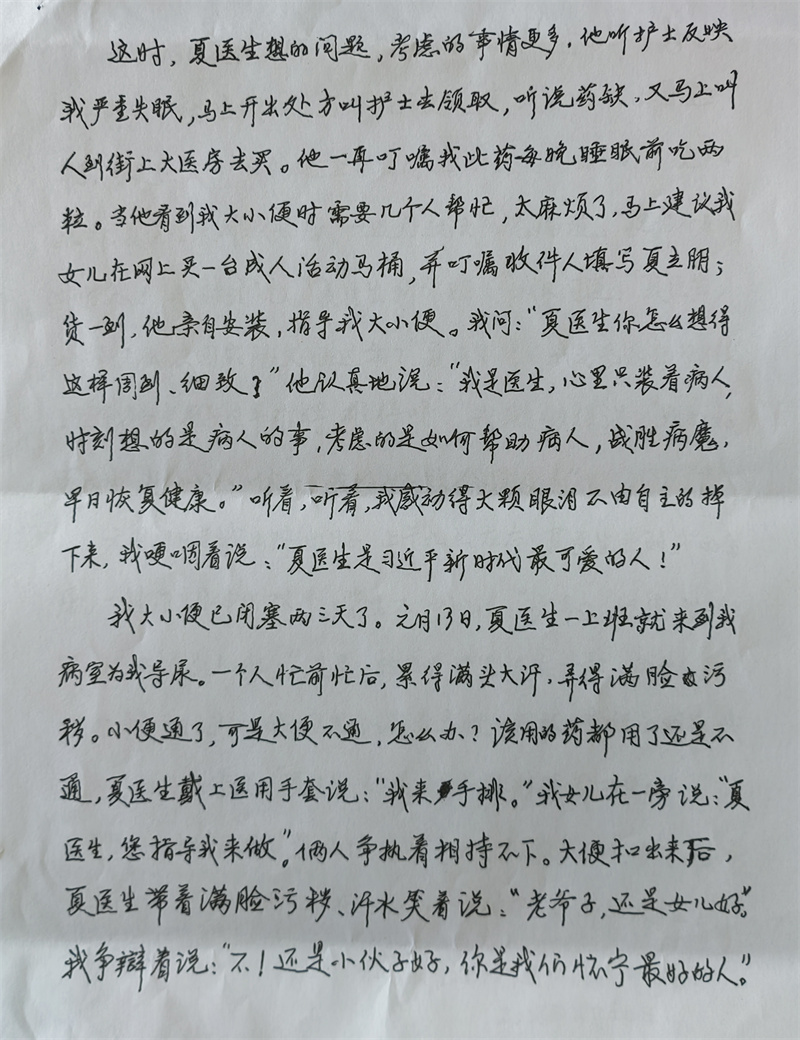 这时，夏医生想的问题，考虑的事情更多．他听护士反映
我严重失眠，马上开出处方叫护士去领取，听说药缺．又马上叫
人到街上大医房去买。他一再叮嘱我此药每晚睡眠前吃两
粒。当他看到我大小便时需要几个人帮忙，太麻烦了，马上建议我
女儿在网上买一台成人活动马桶，并叮嘱收件人填写夏立朋；
货一到，他亲自安装，指导我大小便。我问：“夏医生你怎么想得
这样周到、细致？”他认真地说：“我是医生，心里只装着病人，
时刻想的是病人的事，考虑的是如何帮助病人，战胜病魔，
早日恢复健康。”听着，听着，我感动得大颗眼泪不由自主的掉
下来，我哽咽着说：“夏医生是习近平新时代最可爱的人！”
我大小便已闭塞两三天了。元月13日，夏医生一上班就来到我
病室为我导尿。一个人忙前忙后，累得满头大汗，弄得满脸污
秽。小便通了，可是大便不通，怎么办？该用的药都用了还是不
通，夏医生戴上医用手套说：“我来手排。”我女儿在一旁说：“夏
医生，您指导我来做”。俩人争执着相持不下。大便扣出来后，
夏医生带着满脸污秽、汗水笑着说：“老爷子，还是女儿好。”
我争辩着说：“不！还是小伙子好，你是我们怀宁最好的人。”